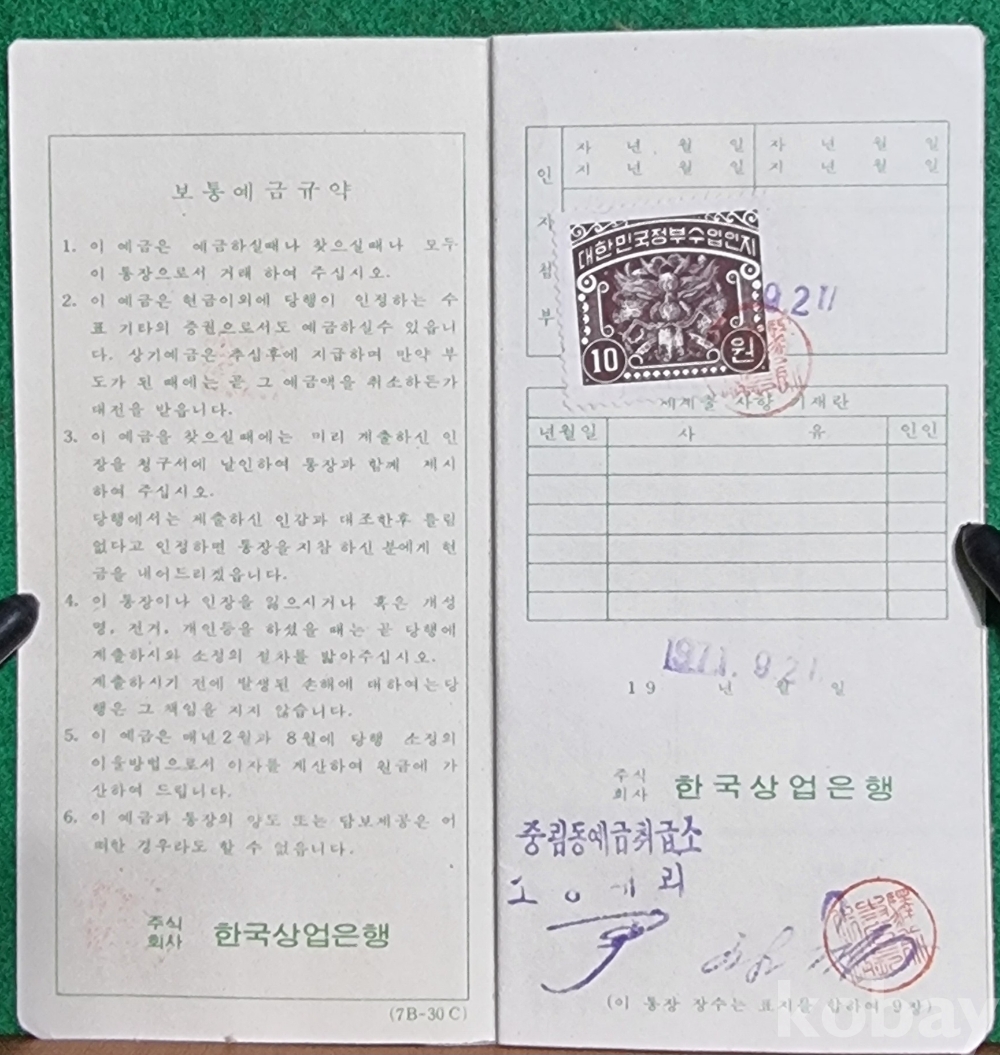 보통예금규약
1. 이 예금은 예금하실때나 찾으실때나 모두
이 통장으로서 거래 하여 주십시오.
2. 이 예금은 현금이외에 당행이 인정하는 수
표 기타의 증권으로서도 예금하실수 있읍니
다. 상기예금은 추심후에 지급하며 만약 부
도가 된 때에는 곧 그 예금액을 취소하든가
대전을 받읍니다.
3. 이 예금을 찾으실때에는 미리 제출하신 인
장을 청구서에 날인하여 통장과 함께 제시
하여 주십시오.
당행에서는 제출하신 인감과 대조한후 틀림
없다고 인정하면 통장을 지참 하신 분에게 현
금을 내어드리겠읍니다.
4. 이 통장이나 인장을 잃으시거나 혹은 개성
명, 전거, 개인등을 하셨을 때는 곧 당행에
계출하시와 소정의 절차를 밟아주십시오.
계출하시기 전에 발생된 손해에 대하여는당
행은 그 책임을 지지 않습니다.
5. 이 예금은 매년 2월과 8월에 당행 소정의
이율방법으로서 이자를 계산하여 원금에 가
산하여 드립니다.
6. 이 예금과 통장의 양도 또는 담보제공은 어
떠한 경우라도 할 수 없읍니다.
주식
회사 한국상업은행
(7B-30C)
자 년 월 일 자 년 월 일
지 년 월 일 지 년 월 일
인
지
첩
부
대한민국정부수입인지
10 원
9.21
사항 기재란
년월일 사 유 인인
9.21
19 년 월 일
주식
회사 한국상업은행
중림동예금취급소
리
(이 통장 장수는 표지를 합하여 장)
kobay